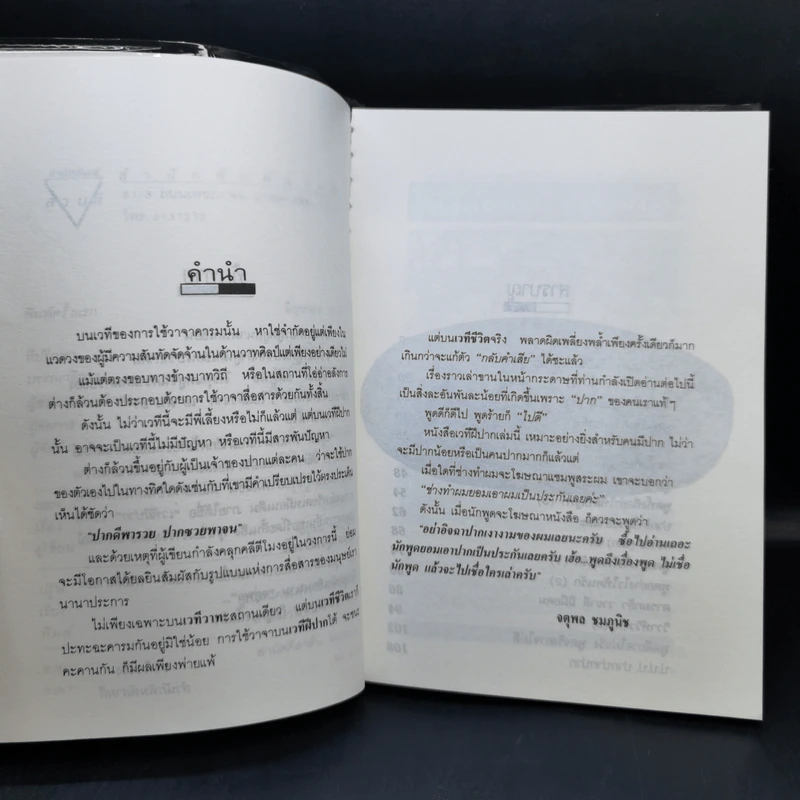 คำนำ
บนเวทีของการใช้วาจาคารมนั้น หาใช่จำกัดอยู่แต่เพียงใน
แวดวงของผู้มีความสันทัดจัดจ้านในด้านวาทศิลป์แต่เพียงอย่างเดียวไม่
แม้แต่ตรงขอบทางข้างบาทวิถี หรือในสถานที่โอ่อ่าอลังการ
ต่างก็ล้วนต้องประกอบด้วยการใช้วาจาสื่อสารด้วยกันทั้งสิ้น
ดังนั้น ไม่ว่าเวทีนี้จะมีพี่เลี้ยงหรือไม่ก็แล้วแต่ แต่บนเวทีฝีปาก
นั้น อาจจะเป็นเวทีนี้ไม่มีปัญหา หรือเวทีนี้มีสารพันปัญหา
ต่างก็ล้วนขึ้นอยู่กับผู้เป็นเจ้าของปากแต่ละคน ว่าจะใช้ปาก
ของตัวเองไปในทางทิศใดดังเช่นกับที่เขามีคำเปรียบเปรยไว้ตรงประเด็น
เห็นได้ชัดว่า
"ปากดีพารวย ปากซวยพาจน"
และด้วยเหตุที่ผู้เขียนกำลังคลุกคลีตีโมงอยู่ในวงการนี้ ย่อม
จะมีโอกาสได้ยลยินสัมผัสกับรูปแบบแห่งการสื่อสารของมนุษย์เรา
นานาประการ
ไม่เพียงเฉพาะบนเวทีวาทะสถานเดียว แต่บนเวทีชีวิตเราก็
ปะทะฉะคารมกันอยู่มิใช่น้อย การใช้วาจาบนเวทีฝีปากได้ จะชนะ
คะคานกัน ก็มีผลเพียงพ่ายแพ้
แต่บนเวทีชีวิตจริง พลาดผิดเพลี่ยงพล้ำเพียงครั้งเดียวก็มาก
เกินกว่าจะแก้ตัว "กลับคำเสีย" ได้ซะแล้ว
เรื่องราวเล่าขานในหน้ากระดาษที่ท่านกำลังเปิดอ่านต่อไปนี้
เป็นสิ่งละอันพันละน้อยที่เกิดขึ้นเพราะ "ปาก" ของคนเราแท้ๆ
พูดดีก็ดีไป พูดร้ายก็ "ไปดี"
หนังสือเวทีฝีปากเล่มนี้ เหมาะอย่างยิ่งสำหรับคนมีปาก ไม่ว่า
จะมีปากน้อยหรือเป็นคนปากมากก็แล้วแต่
เมื่อใดที่ช่างทำผมจะโฆษณาแชมพูสระผม เขาจะบอกว่า
"ช่างทำผมยอมเอาผมเป็นประกันเลยค่ะ"
ดังนั้น เมื่อนักพูดจะโฆษณาหนังสือ ก็ควรจะพูดว่า
"อย่าอิจฉาปากเงางามของผมเลยนะครับ ซื้อไปอ่านเถอะ
นักพูดยอมเอาปากเป็นประกันเลยครับ เฮ้อ...พูดถึงเรื่องพูด ไม่เชื่อ
นักพูด แล้วจะไปเชื่อใครเล่าครับ"
จตุพล ชมภูนิช